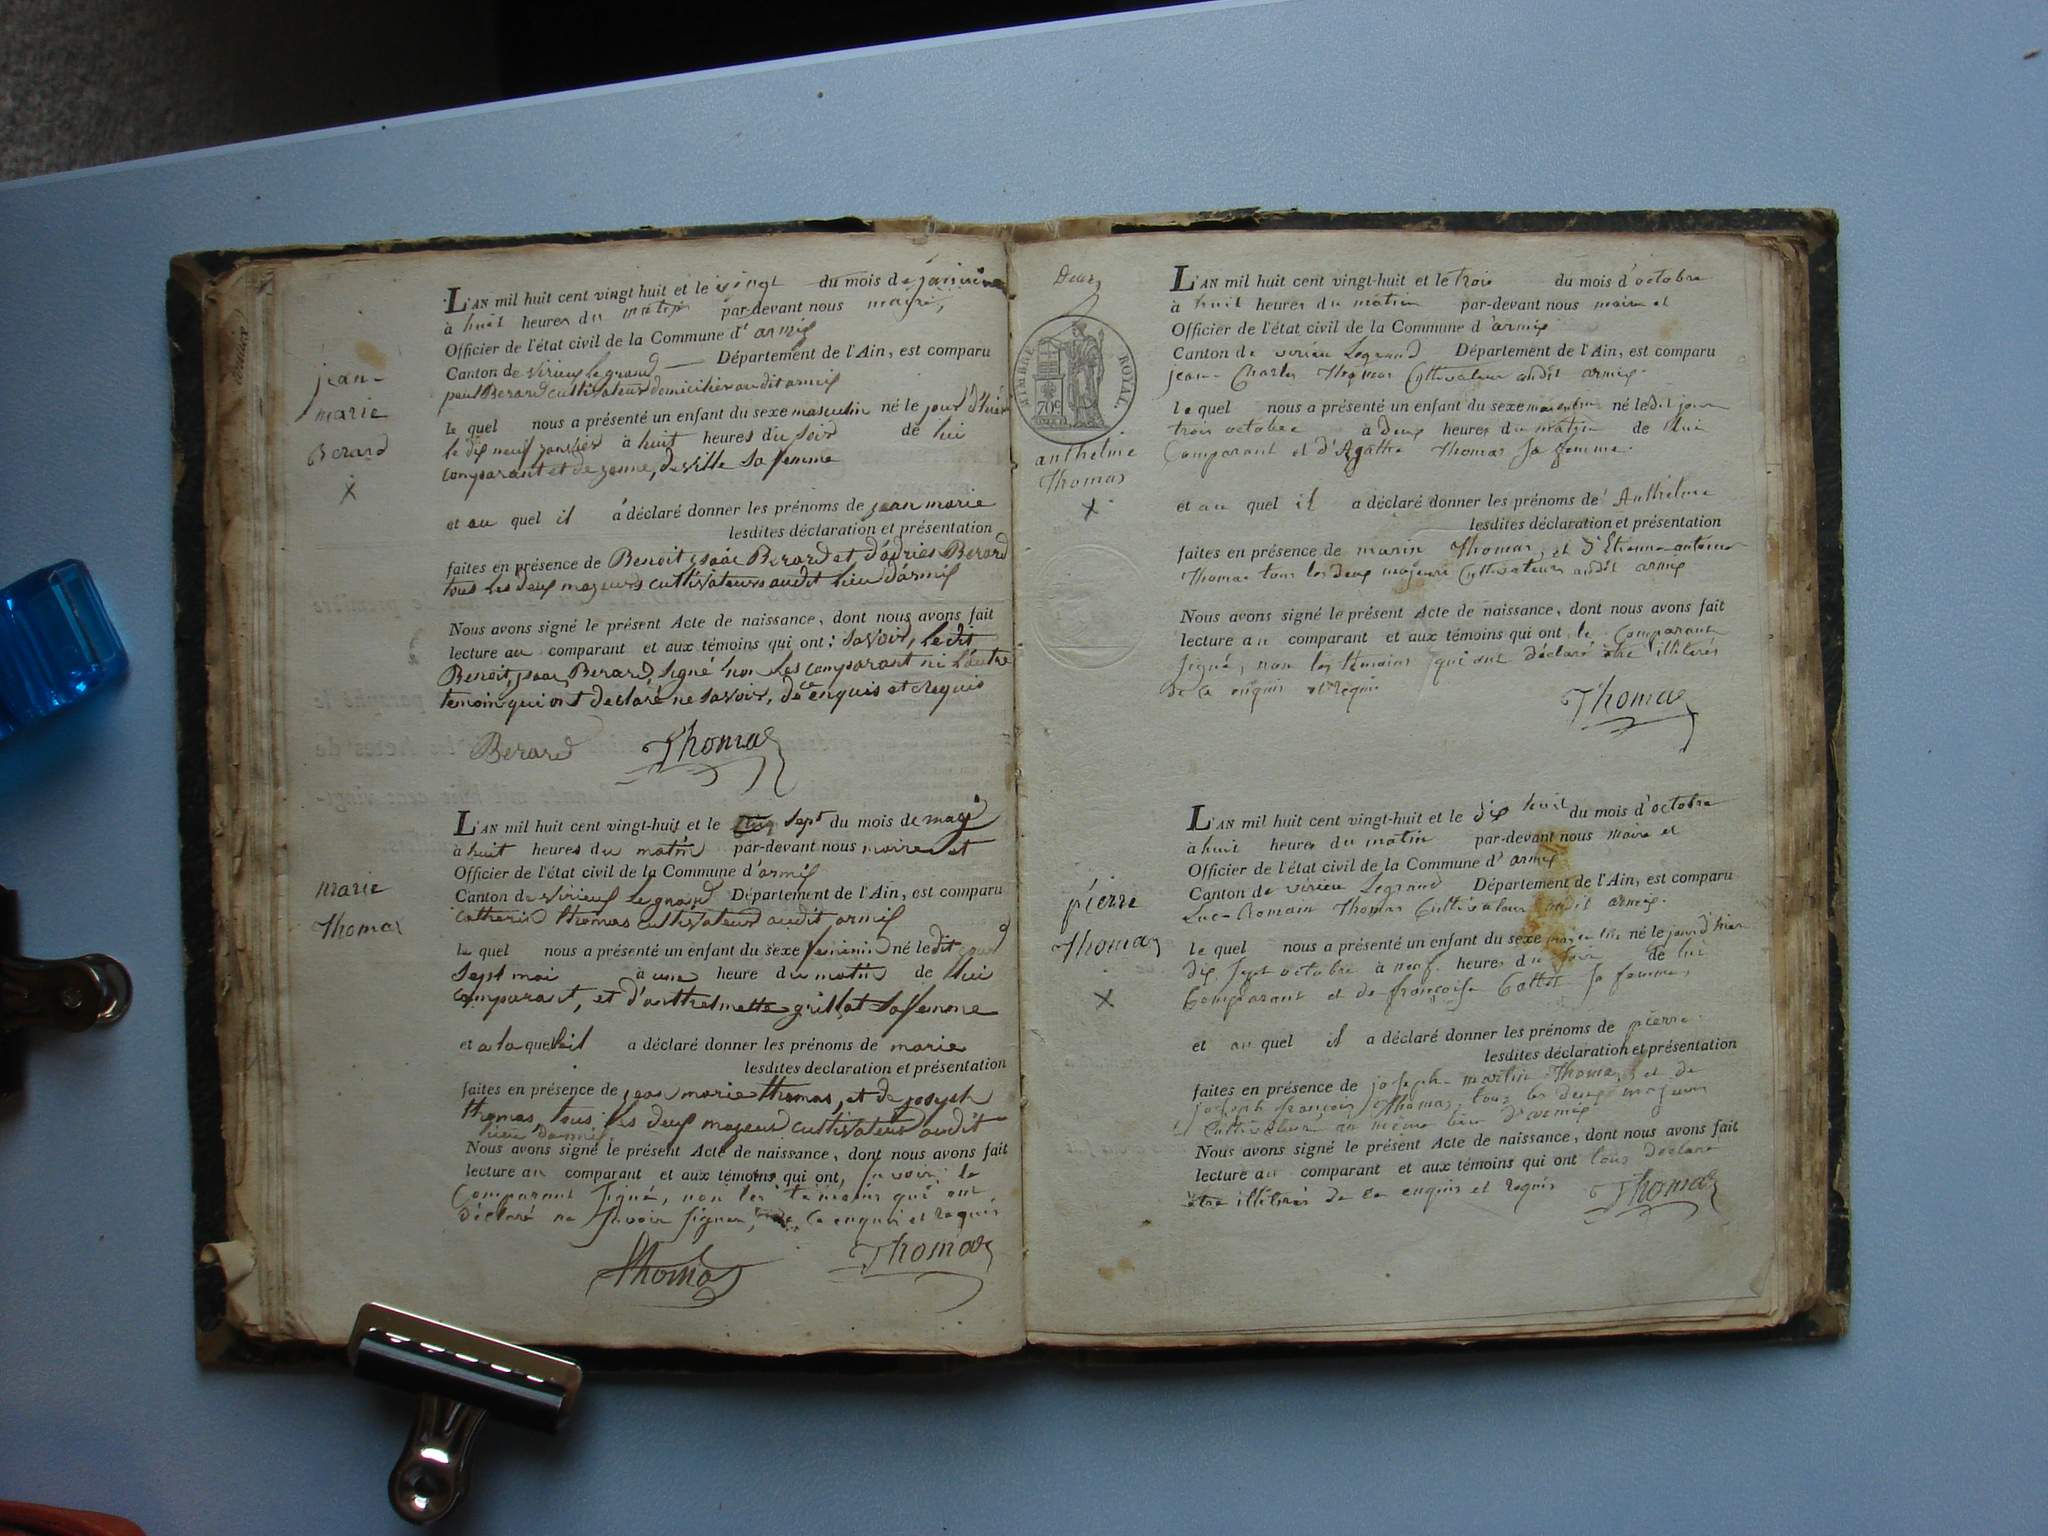 jean
marie
Berard
x
L'AN mil huit cent vingt-huit et le vingt du mois de janvier
à huit heures du matin par-devant nous maire,
Officier de l'état civil de la Commune d'armix
Canton de virieux le grand Département de l'Ain, est comparu
paul Berard cultivateur domicilier au dit armix
le quel nous a présenté un enfant du sexe masculin né le jour d'hier
le dix neuf janvier à huit heures du soir de lui
comparant et de deville sa femme
et au quel il a déclaré donner les prénoms de jean marie
lesdites déclaration et présentation
faites en présence de Benoit isaac Berard et d'adrien Berard
tous les deux majeurs cultivateurs audit lieu d'armix
Nous avons signé le présent Acte de naissance, dont nous avons fait
lecture au comparant et aux témoins qui ont: savoir, ledit
Benoit, isaac Berard, signé non les comparant ni l'autre
temoin qui ont declaré ne savoir, de ce enquis et requis
Berard Thomas
marie
Thomas
L'AN mil huit cent vingt-huit et le sept du mois de mai
à huit heures du matin par-devant nous maire et
Officier de l'état civil de la Commune d'armix
Canton de virieux le grand Département de l'Ain, est comparu
catherin thomas cultivateur audit armix
le quel nous a présenté un enfant du sexe feminin né le dit jour
sept mai à une heure du matin de lui
comparant, et d'anthelmette grillat sa femme
et a la quel il a déclaré donner les prénoms de marie
lesdites declaration et présentation
faites en présence de jean marie thomas, et de joseph
thomas, tous les deux majeur cultivateur audit
lieu d'armix
Nous avons signé le présent Acte de naissance, dont nous avons fait
lecture au comparant et aux témoins qui ont, savoir; le
Comparant signé, non les témoins qui ont
déclaré ne savoir signer, de ce enquis et requis
Thomas Thomas
Deux
TIMBRE ROYAL.
70c
anthelme
Thomas
x
L'AN mil huit cent vingt-huit et le trois du mois d'octobre
à huit heures du matin par-devant nous maire et
Officier de l'état civil de la Commune d'armix
Canton de virieu Legrand Département de l'Ain, est comparu
jean Charles Thomas Cultivateur audit armix.
le quel nous a présenté un enfant du sexe masculin né ledit jour
trois octobre à deux heures du matin de lui
Comparant et d'Agathe Thomas sa femme.
et au quel il a déclaré donner les prénoms de Anthelme
lesdites déclaration et présentation
faites en présence de marin Thomas, et d'Etienne antoine
Thomas tous les deux majeurs Cultivateurs audit armix
Nous avons signé le présent Acte de naissance, dont nous avons fait
lecture au comparant et aux témoins qui ont, le Comparant
signé, non les témoins qui ont déclaré être illitérés
de ce enquis et requis
Thomas
pierre
Thomas
x
L'AN mil huit cent vingt-huit et le dix huit du mois d'octobre
à huit heures du matin par-devant nous maire et
Officier de l'état civil de la Commune d'armix
Canton de virieu Legrand Département de l'Ain, est comparu
Luc Romain Thomas Cultivateur audit armix.
le quel nous a présenté un enfant du sexe masculin né le jour d'hier
dix sept octobre à neuf heures du soir de lui
Comparant et de françoise sa femme,
et au quel il a déclaré donner les prénoms de pierre
lesdites déclaration et présentation
faites en présence de joseph martin Thomas, et de
joseph françois Thomas, tous les deux majeurs
Cultivateurs au même lieu d'armix
Nous avons signé le présent Acte de naissance, dont nous avons fait
lecture au comparant et aux témoins qui ont tous déclaré
être illitérés de ce enquis et requis Thomas